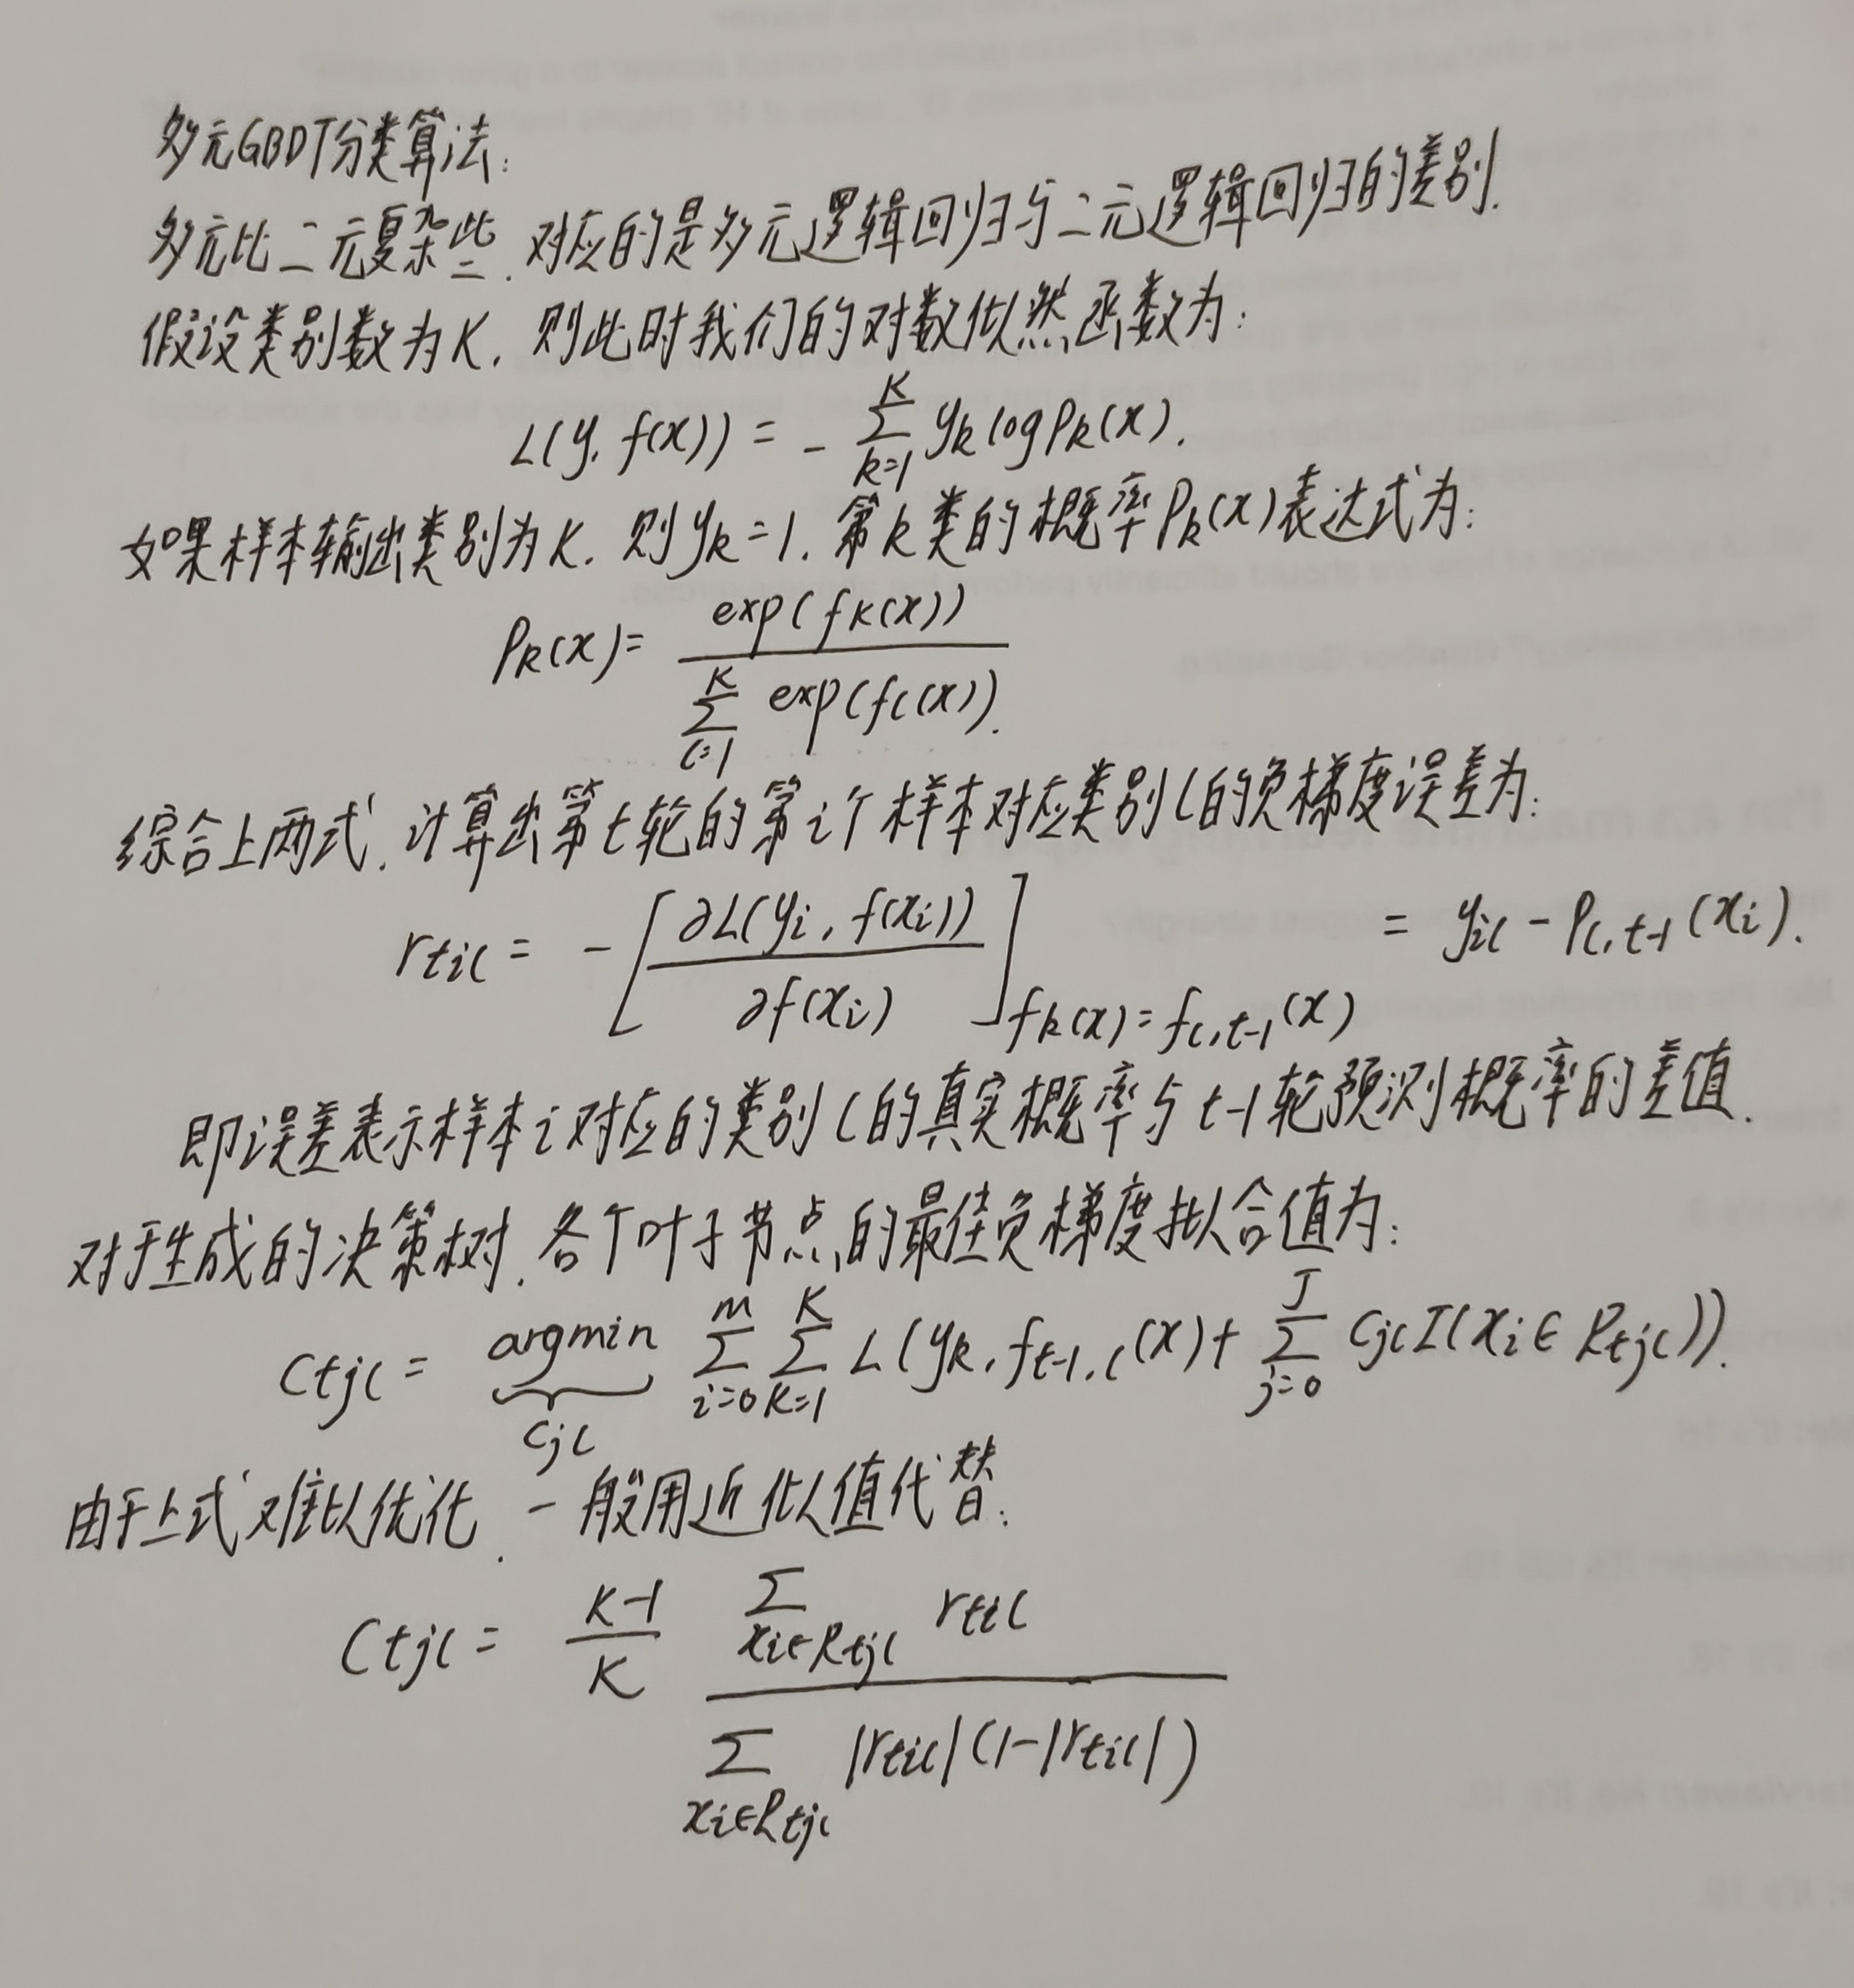 多元GBDT分类算法:
多元比二元复杂些, 对应的是多元逻辑回归与二元逻辑回归的差别.
假设类别数为K, 则此时我们的对数似然函数为:
L(y, f(x)) = - \sum_{k=1}^{K} y_k log P_k(x).
如果样本输出类别为K, 则y_k=1, 第k类的概率P_k(x)表达式为:
P_k(x) = \frac{exp(f_k(x))}{\sum_{l=1}^{K} exp(f_l(x))}.
综合上两式, 计算出第t轮的第i个样本对应类别l的负梯度误差为:
r_{til} = -[\frac{∂L(y_i, f(x_i))}{∂f(x_i)}]_{f_k(x)=f_{l,t-1}(x)} = y_{il} - P_{l,t-1}(x_i).
即误差表示样本i对应的类别l的真实概率与t-1轮预测概率的差值.
对于生成的决策树, 各个叶子节点的最佳负梯度拟合值为:
C_{tjl} = \underbrace{argmin}_{c_{jl}} \sum_{i=0}^{m} \sum_{k=1}^{K} L(y_k, f_{t-1,l}(x) + \sum_{j=0}^{J} c_{jl} I(x_i ∈ R_{tjl})).
由于上式难以优化, 一般用近似值代替:
C_{tjl} = \frac{K-1}{K} \frac{\sum_{x_i∈R_{tjl}} r_{til}}{\sum_{x_i∈R_{tjl}} |r_{til}|(1-|r_{til}|)}